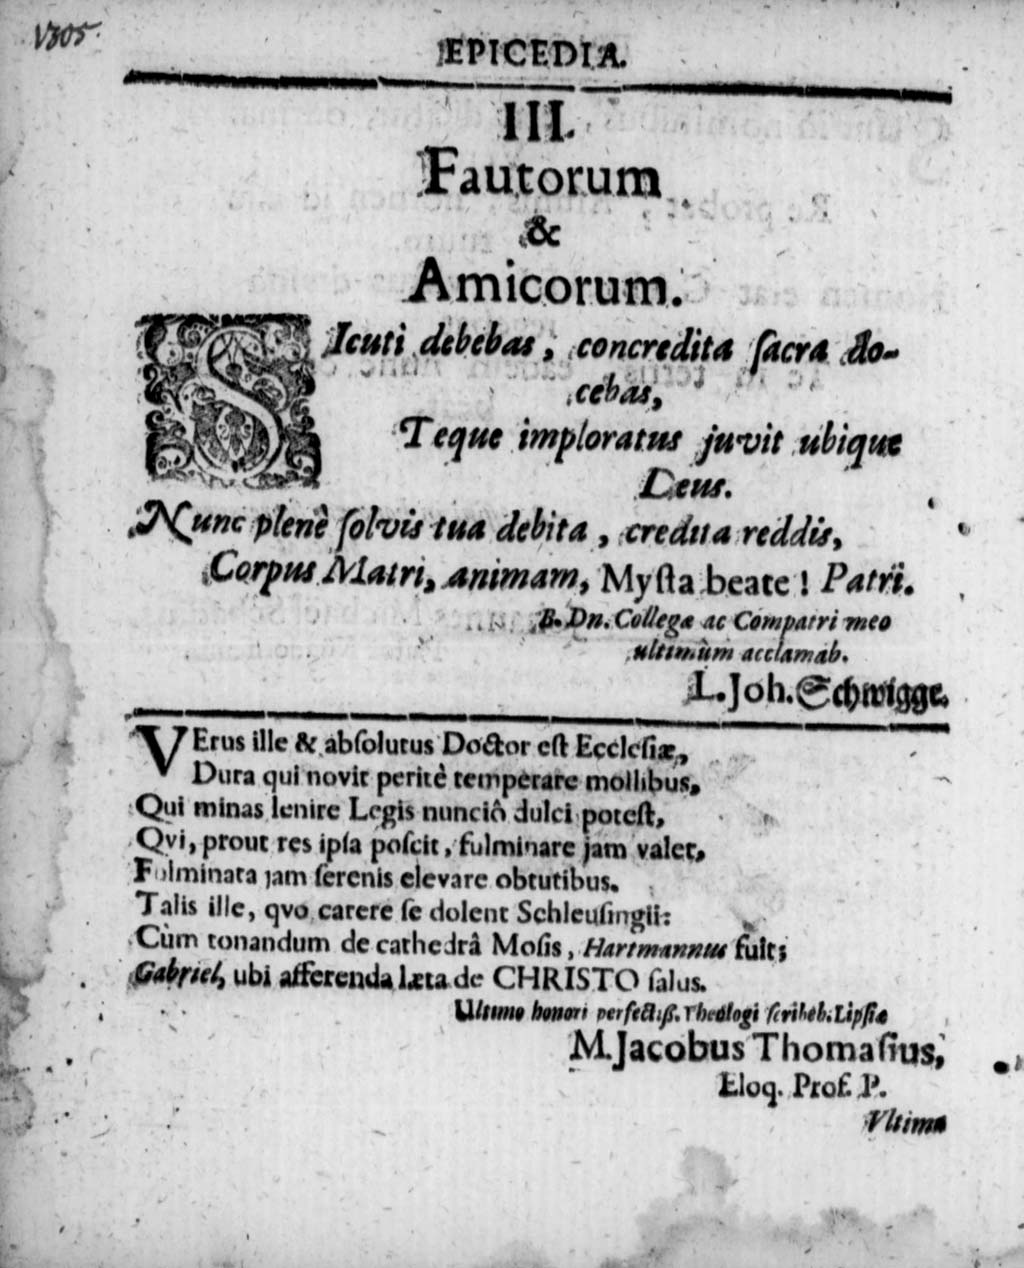 V305.
EPICEDIA.
III.
Fautorum
&
Amicorum.
SIcuti debebas, concredita ſacra do-
cebas,
Teque imploratus juvit ubique
Deus.
Nunc plenè ſolvis tua debita, credita reddis,
Corpus Matri, animam, Myſta beate! Patri.
B. Dn. Collegæ ac Compatri meo
ultimùm acclamab.
L. Joh. Schwigge.
VErus ille & abſolutus Doctor eſt Eccleſiæ,
Dura qui novit peritè temperare mollibus,
Qui minas lenire Legis nunciô dulci poteſt,
Qvi, prout res ipſa poſcit, fulminare jam valet,
Fulminata jam ſerenis elevare obtutibus.
Talis ille, qvo carere ſe dolent Schleuſingii:
Cùm tonandum de cathedrâ Moſis, Hartmannus fuit;
Gabriel, ubi afferenda læta de CHRISTO ſalus.
Ultimo honori perfectiß. Theologi ſcribeb. Lipſiæ
M. Jacobus Thomaſius,
Eloq. Prof. P.
Vltima